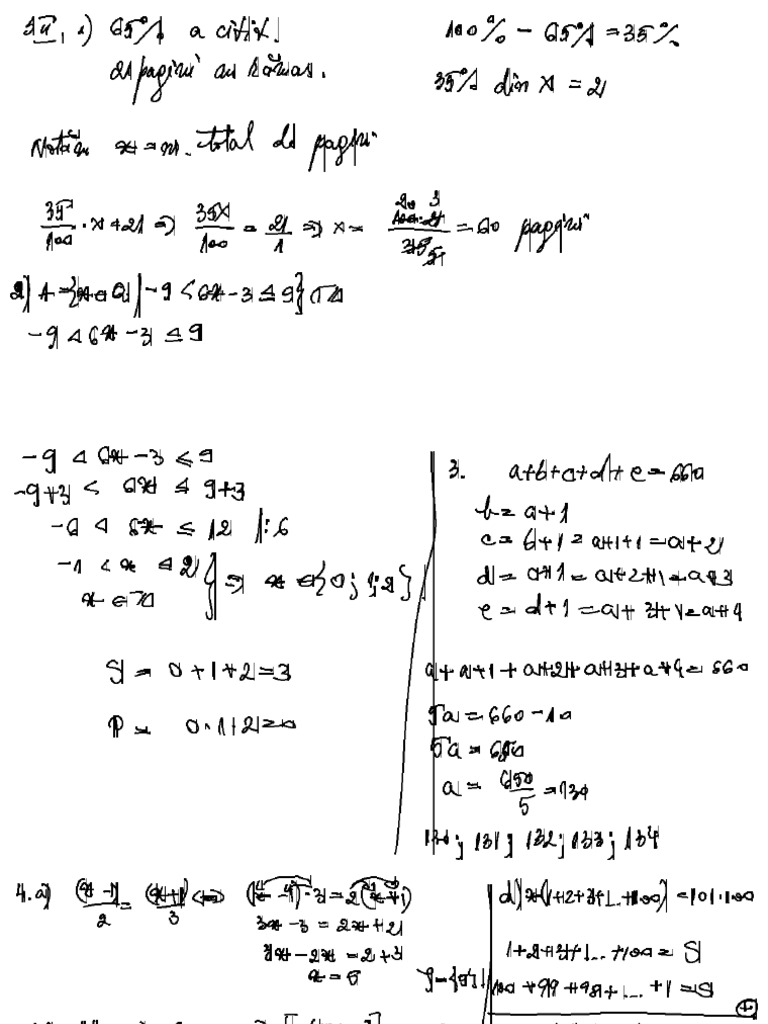 1) 65% a citit.
100% - 65% = 35%
21 pagini au rămas.
35% din x = 21
Notăm x = nr. total de pagini
35/100 · x = 21 => 35x/100 = 21/1 => x = 100·21/35 = 60 pagini
2) A = {x ∈ Q | -9 < 6x - 3 ≤ 9}
-9 < 6x - 3 ≤ 9
-9 < 6x - 3 ≤ 9
-9+3 < 6x ≤ 9+3
-6 < 6x ≤ 12 |:6
-1 < x ≤ 2
=> x ∈ {0; 1; 2}
S = 0+1+2=3
P = 0·1·2=0
3. a+b+c+d+e=660
b = a+1
c = b+1 = a+1+1 = a+2
d = c+1 = a+2+1 = a+3
e = d+1 = a+3+1 = a+4
a+a+1+a+2+a+3+a+4=660
5a = 660-10
5a = 650
a = 650/5 = 130
130; 131; 132; 133; 134
4. a) (x-1)/2 = (x+1)/3 <=> (x-1)·3=2(x+1)
3x-3=2x+2
3x-2x=2+3
x=5
S={5}
d) x(1+2+3+...+100)=101·100
1+2+3+...+100=S
100+99+98+...+1=S